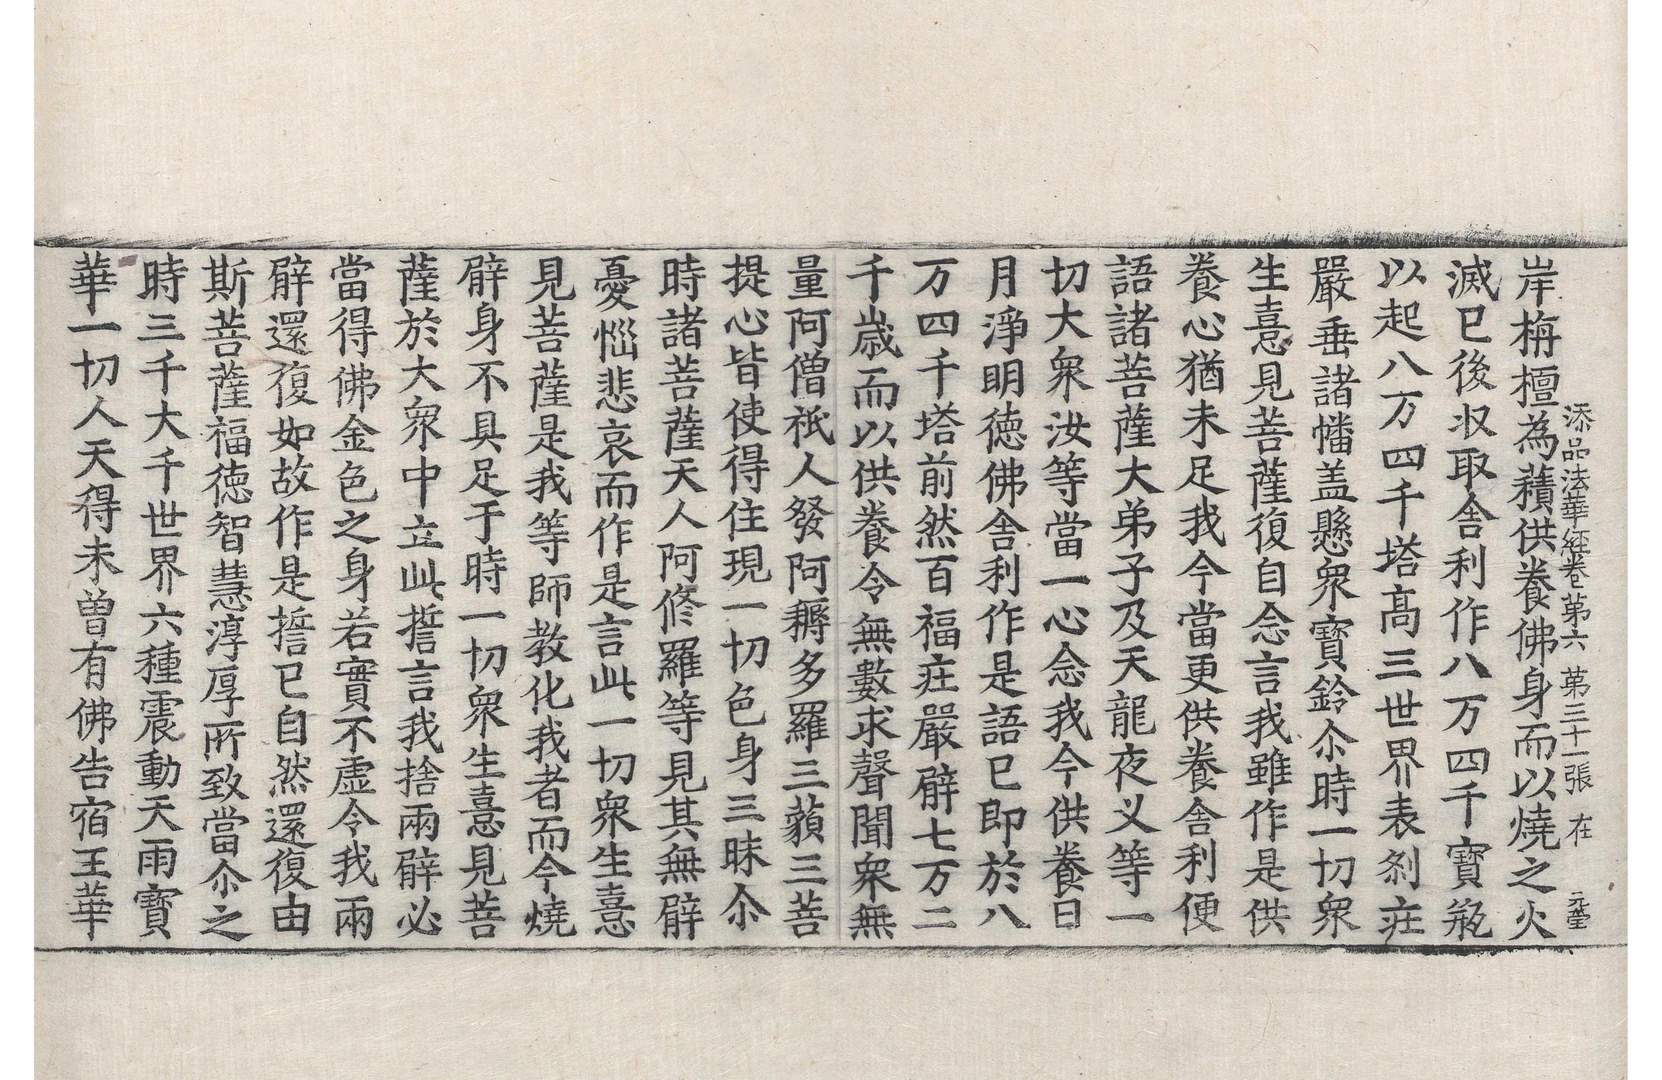 添品法華経卷第六　第三十一張　在　元瑩
岸栴檀為𧂐供養佛身而以燒之火
滅已後収取舎利作八万四千寶瓶
以起八万四千塔高三世界表刹莊
嚴垂諸幡盖懸衆寶鈴尒時一切衆
生憙見菩薩復自念言我雖作是供
養心猶未足我今當更供養舎利便
語諸菩薩大弟子及天龍夜叉等一
切大衆汝等當一心念我今供養日
月淨明德佛舎利作是語已即於八
万四千塔前然百福莊嚴臂七万二
千歳而以供養令無數求聲聞衆無
量阿僧祇人發阿耨多羅三藐三菩
提心皆使得住現一切色身三昧尒
時諸菩薩天人阿修羅等見其無臂
憂惱悲哀而作是言此一切衆生憙
見菩薩是我等師教化我者而今燒
臂身不具足于時一切衆生憙見菩
薩於大衆中立此誓言我捨兩臂必
當得佛金色之身若實不虛令我兩
臂還復如故作是誓已自然還復由
斯菩薩福德智慧淳厚所致當尒之
時三千大千世界六種震動天雨寶
華一切人天得未曽有佛告宿王華